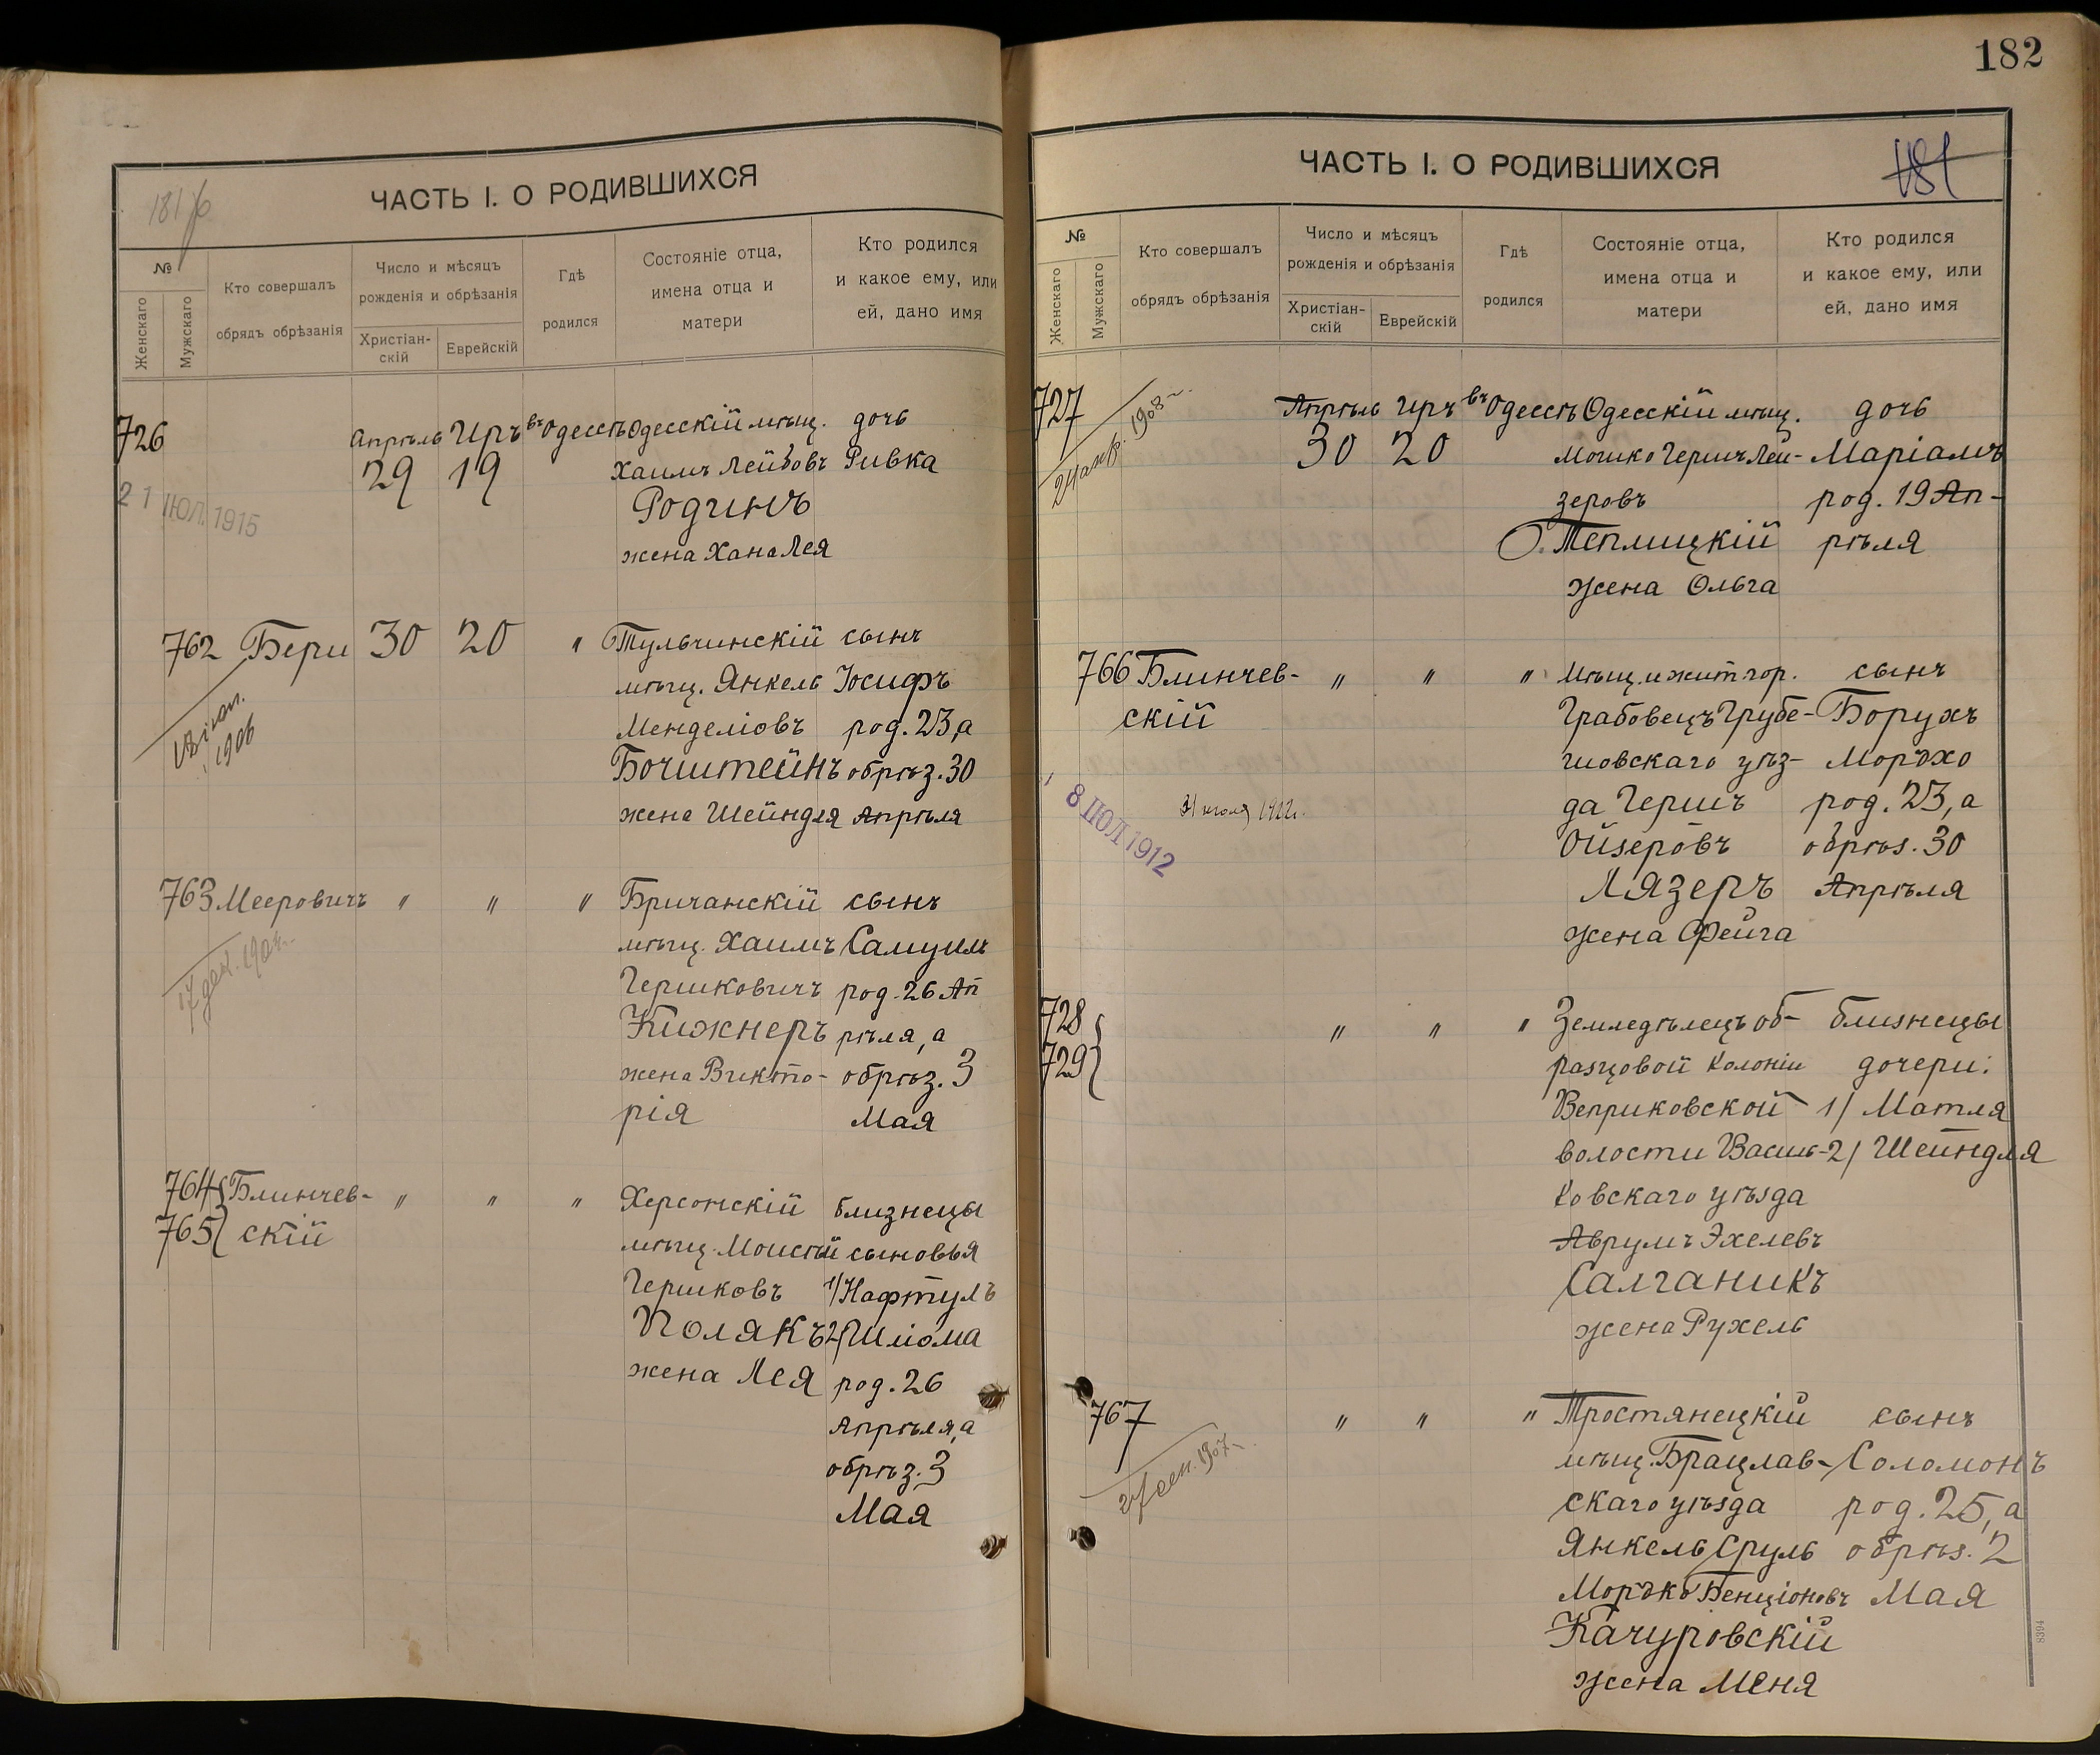 ЧАСТЬ I. О РОДИВШИХСЯ
181
№
Женскаго
Мужскаго
Кто совершалъ
обрядъ обрѣзанія
Число и мѣсяцъ
рожденія и обрѣзанія
Христіан-
скій
Еврейскій
Гдѣ
родился
Состояніе отца,
имена отца и
матери
Кто родился
и какое ему, или
ей, дано имя
726 Апрѣль Иръ въ Одессѣ Одесскій мѣщ. дочь
29 19 Хаимъ Лейбовъ Ривка
21 ІЮЛ. 1915
Родинъ
жена Хана Лея
762 Бери 30 20 " Тульчинскій сынъ
мѣщ. Янкель Іосифъ
Менделіовъ род. 23, а
1906
Бочштейнъ обрѣз. 30
жена Шейндля Апрѣля
763 Мееровичъ " " " Бричанскій сынъ
мѣщ. Хаимъ Самуилъ
17 дек. 190
Гершковичъ род. 26 Ап
Кижнеръ рѣля, а
жена Викто- обрѣз. 3
рія Мая
764 Блинчев- " " " Херсонскій близнецы
765 скій мѣщ. Моисѣй сыновья
Гершковъ 1/ Нафтулъ
Полякъ 2/ Шліома
жена Лея род. 26
Апрѣля, а
обрѣз. 3
Мая
182
ЧАСТЬ I. О РОДИВШИХСЯ
181
№
Женскаго
Мужскаго
Кто совершалъ
обрядъ обрѣзанія
Число и мѣсяцъ
рожденія и обрѣзанія
Христіан-
скій
Еврейскій
Гдѣ
родился
Состояніе отца,
имена отца и
матери
Кто родился
и какое ему, или
ей, дано имя
727 Апрѣль Иръ въ Одессѣ Одесскій мѣщ. дочь
1908
30 20 Мошко Гершъ Лей- Маріамъ
зеровъ род. 19 Ап-
Теплицкій рѣля
жена Ольга
766 Блинчев- " " " Мѣщ. и жит. гор. сынъ
скій Грабовецъ Грубе- Борухъ
шовскаго уѣз- Мордхо
да Гершъ род. 23, а
8 ІЮЛ 1912
Ойзеровъ обрѣз. 30
Лязеръ Апрѣля
жена Фейга
728 " " " Земледѣлецъ об- близнецы
729 разцовой колоніи дочери:
Веприковской 1/ Матля
волости Василь- 2/ Шейндля
ковскаго уѣзда
Аврумъ Эхелевъ
Салганикъ
жена Рухель
767 " " " Тростянецкій сынъ
мѣщ. Брацлав- Соломонъ
27 сен. 1907
скаго уѣзда род. 25, а
Янкель Сруль обрѣз. 2
Мордко Бенціоновъ Мая
Качуровскій
жена Меня
8394